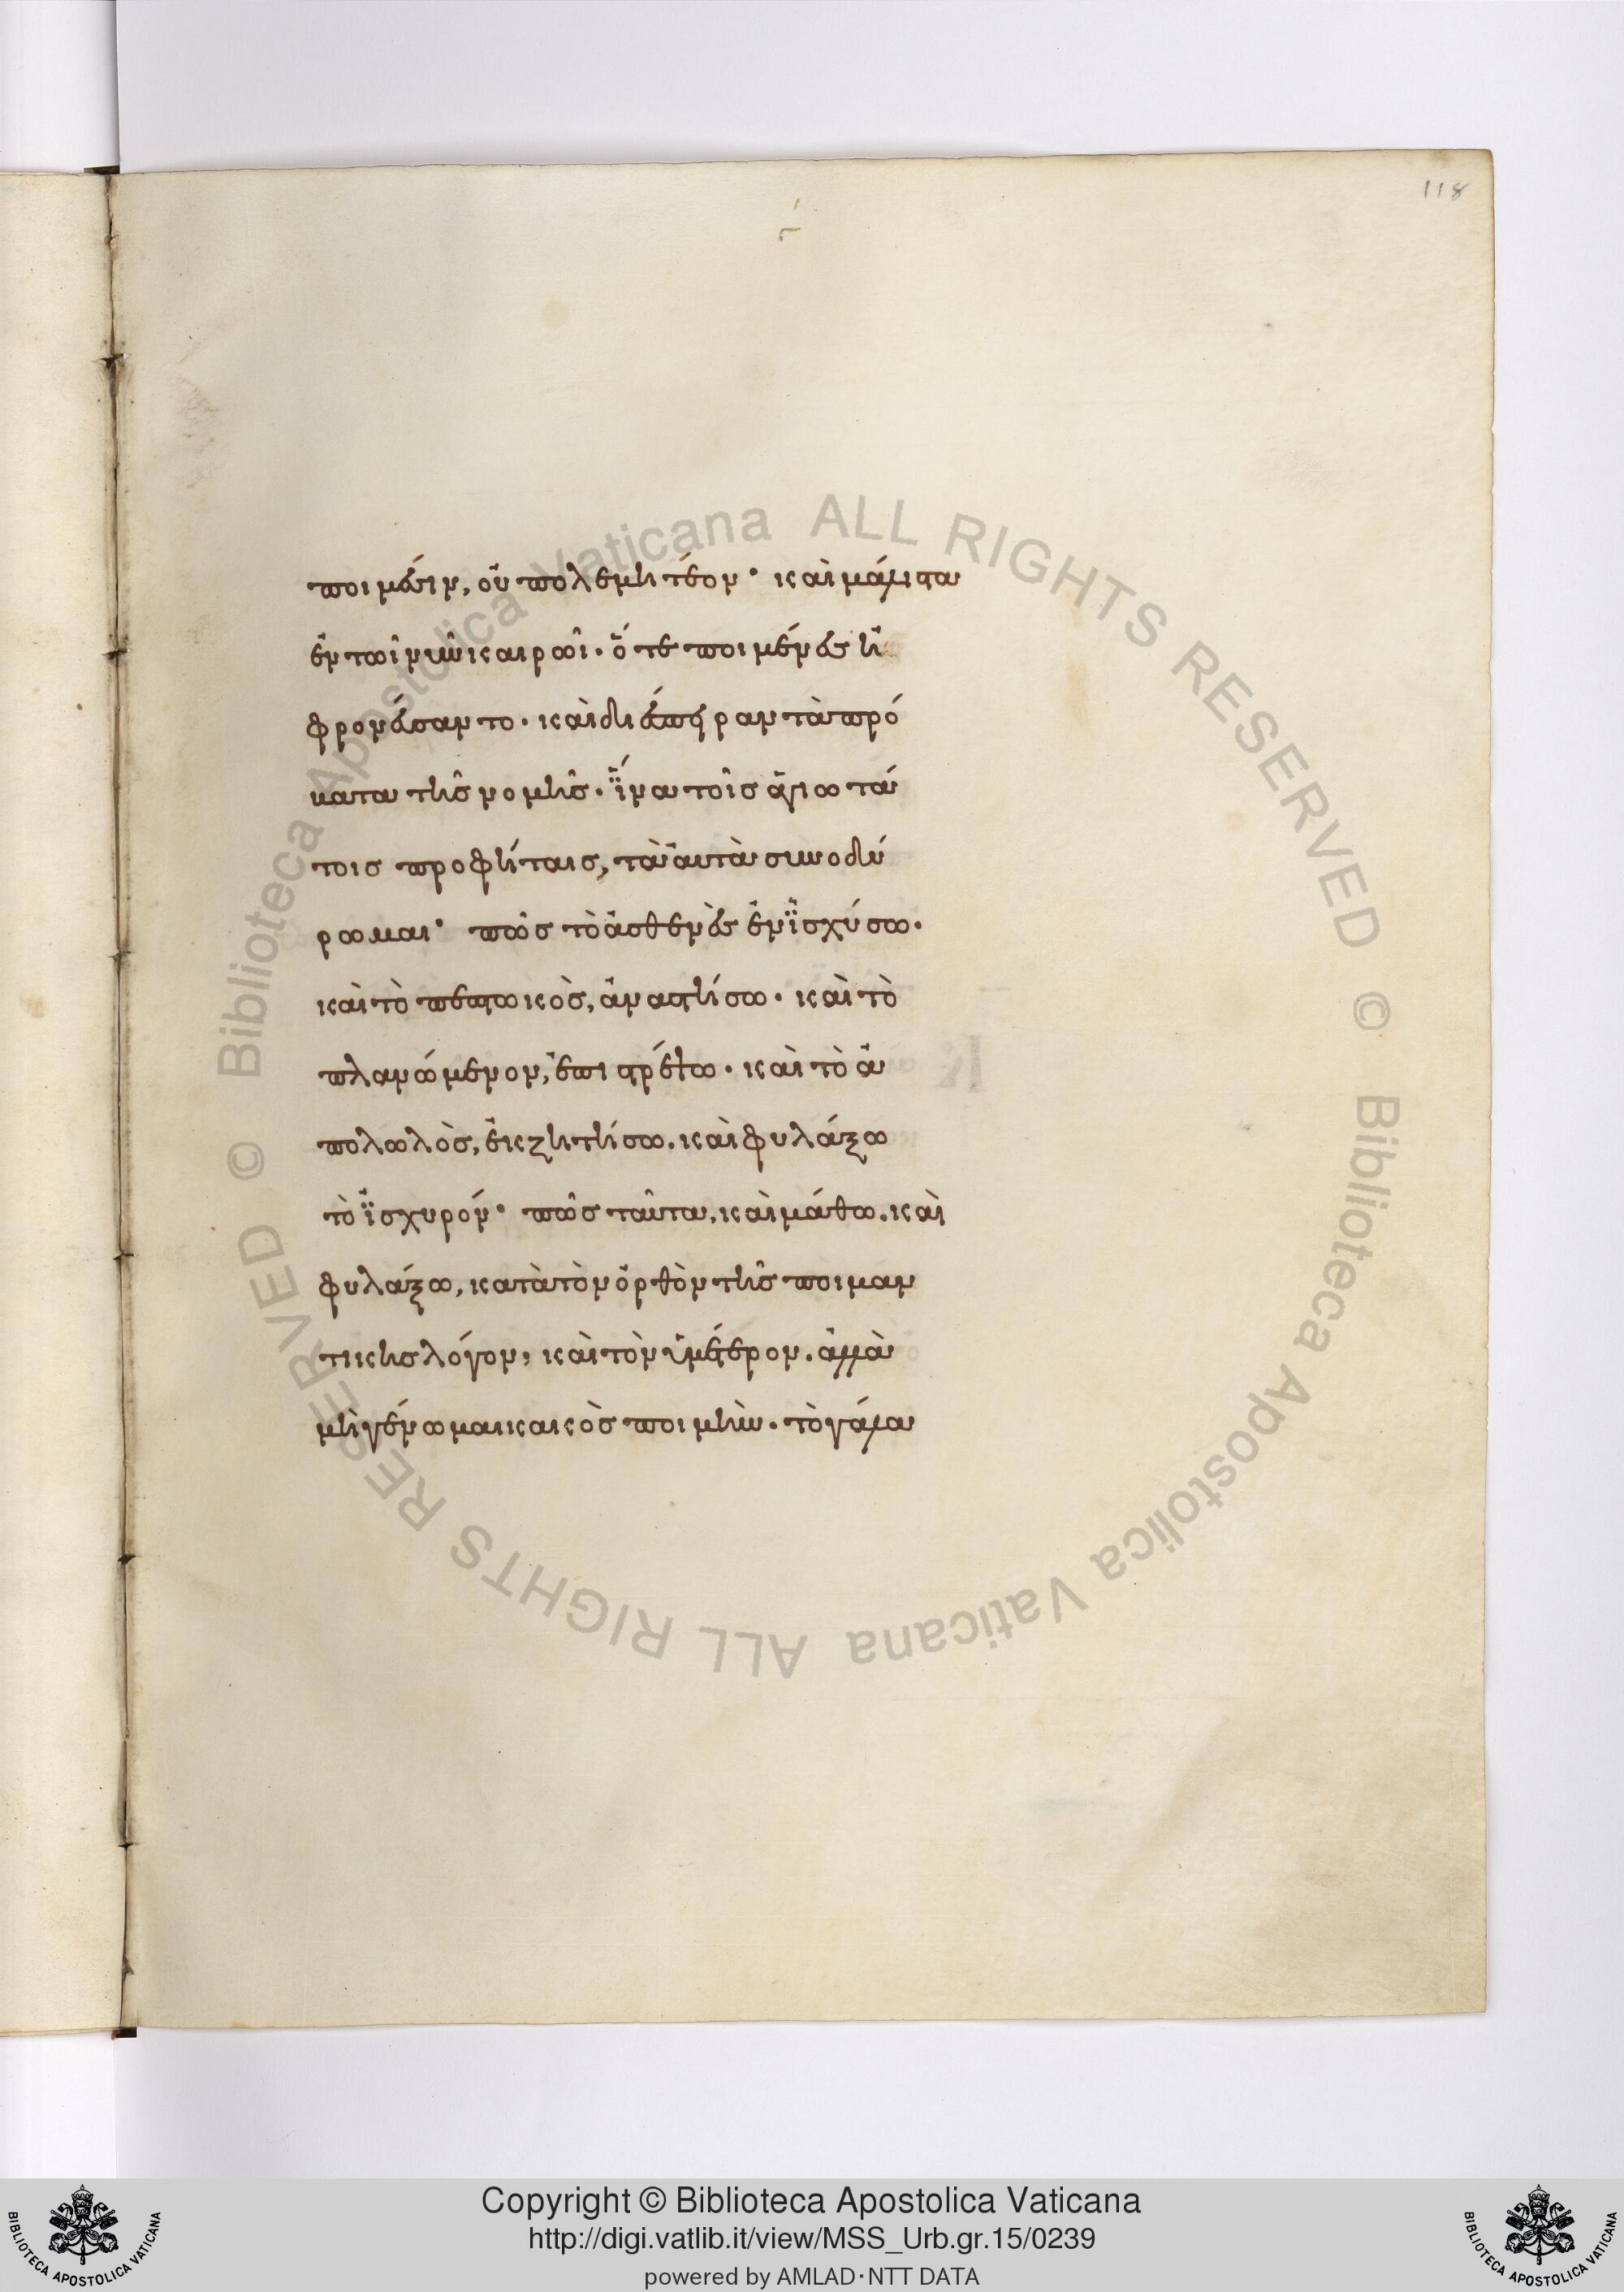 118
ποιμέσιν, οὐ πολεμητέον· καὶ μάλιστα
ἐν τῶι νῦν καιρῶι· ὅτε ποιμένες ἠ
φρονεύσαντο· καὶ διέσπειραν τὰ πρό
βατα τῆς νομῆς· ἵνα τοῖς ἁγιωτά
τοις προφήταις, τὰ αὐτὰ συνοδύ
ρωμαι· πῶς τὸ ἀσθενὲς ἐνϊσχύσω·
καὶ τὸ πεπτωκὸς, ἀναστήσω· καὶ τὸ
πλανώμενον, ἐπιστρέψω· καὶ τὸ ἀ
πολωλὸς, ἐκζητήσω· καὶ φυλάξω
τὸ ἰσχυρόν· πῶς ταῦτα, καὶ μάθω· καὶ
φυλάξω, κατὰ τὸν ὀρθὸν τῆς ποιμαν
τικῆς λόγον, καὶ τὸν ὑμέτερον· ἀλλὰ
μὴ γένωμαι κακὸς ποιμὴν· τὸ γάλα
© Biblioteca Apostolica Vaticana ALL RIGHTS RESERVED
© Biblioteca Apostolica Vaticana ALL RIGHTS RESERVED
Copyright © Biblioteca Apostolica Vaticana
http://digi.vatlib.it/view/MSS_Urb.gr.15/0239
powered by AMLAD·NTT DATA
BIBLIOTECA APOSTOLICA VATICANA
BIBLIOTECA APOSTOLICA VATICANA